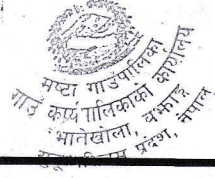 मष्टा गाउँपालिका
गाउँ कार्यपालिकाको कार्यालय
भातेखोला, बझाङ
सुदूरपश्चिम प्रदेश, नेपाल